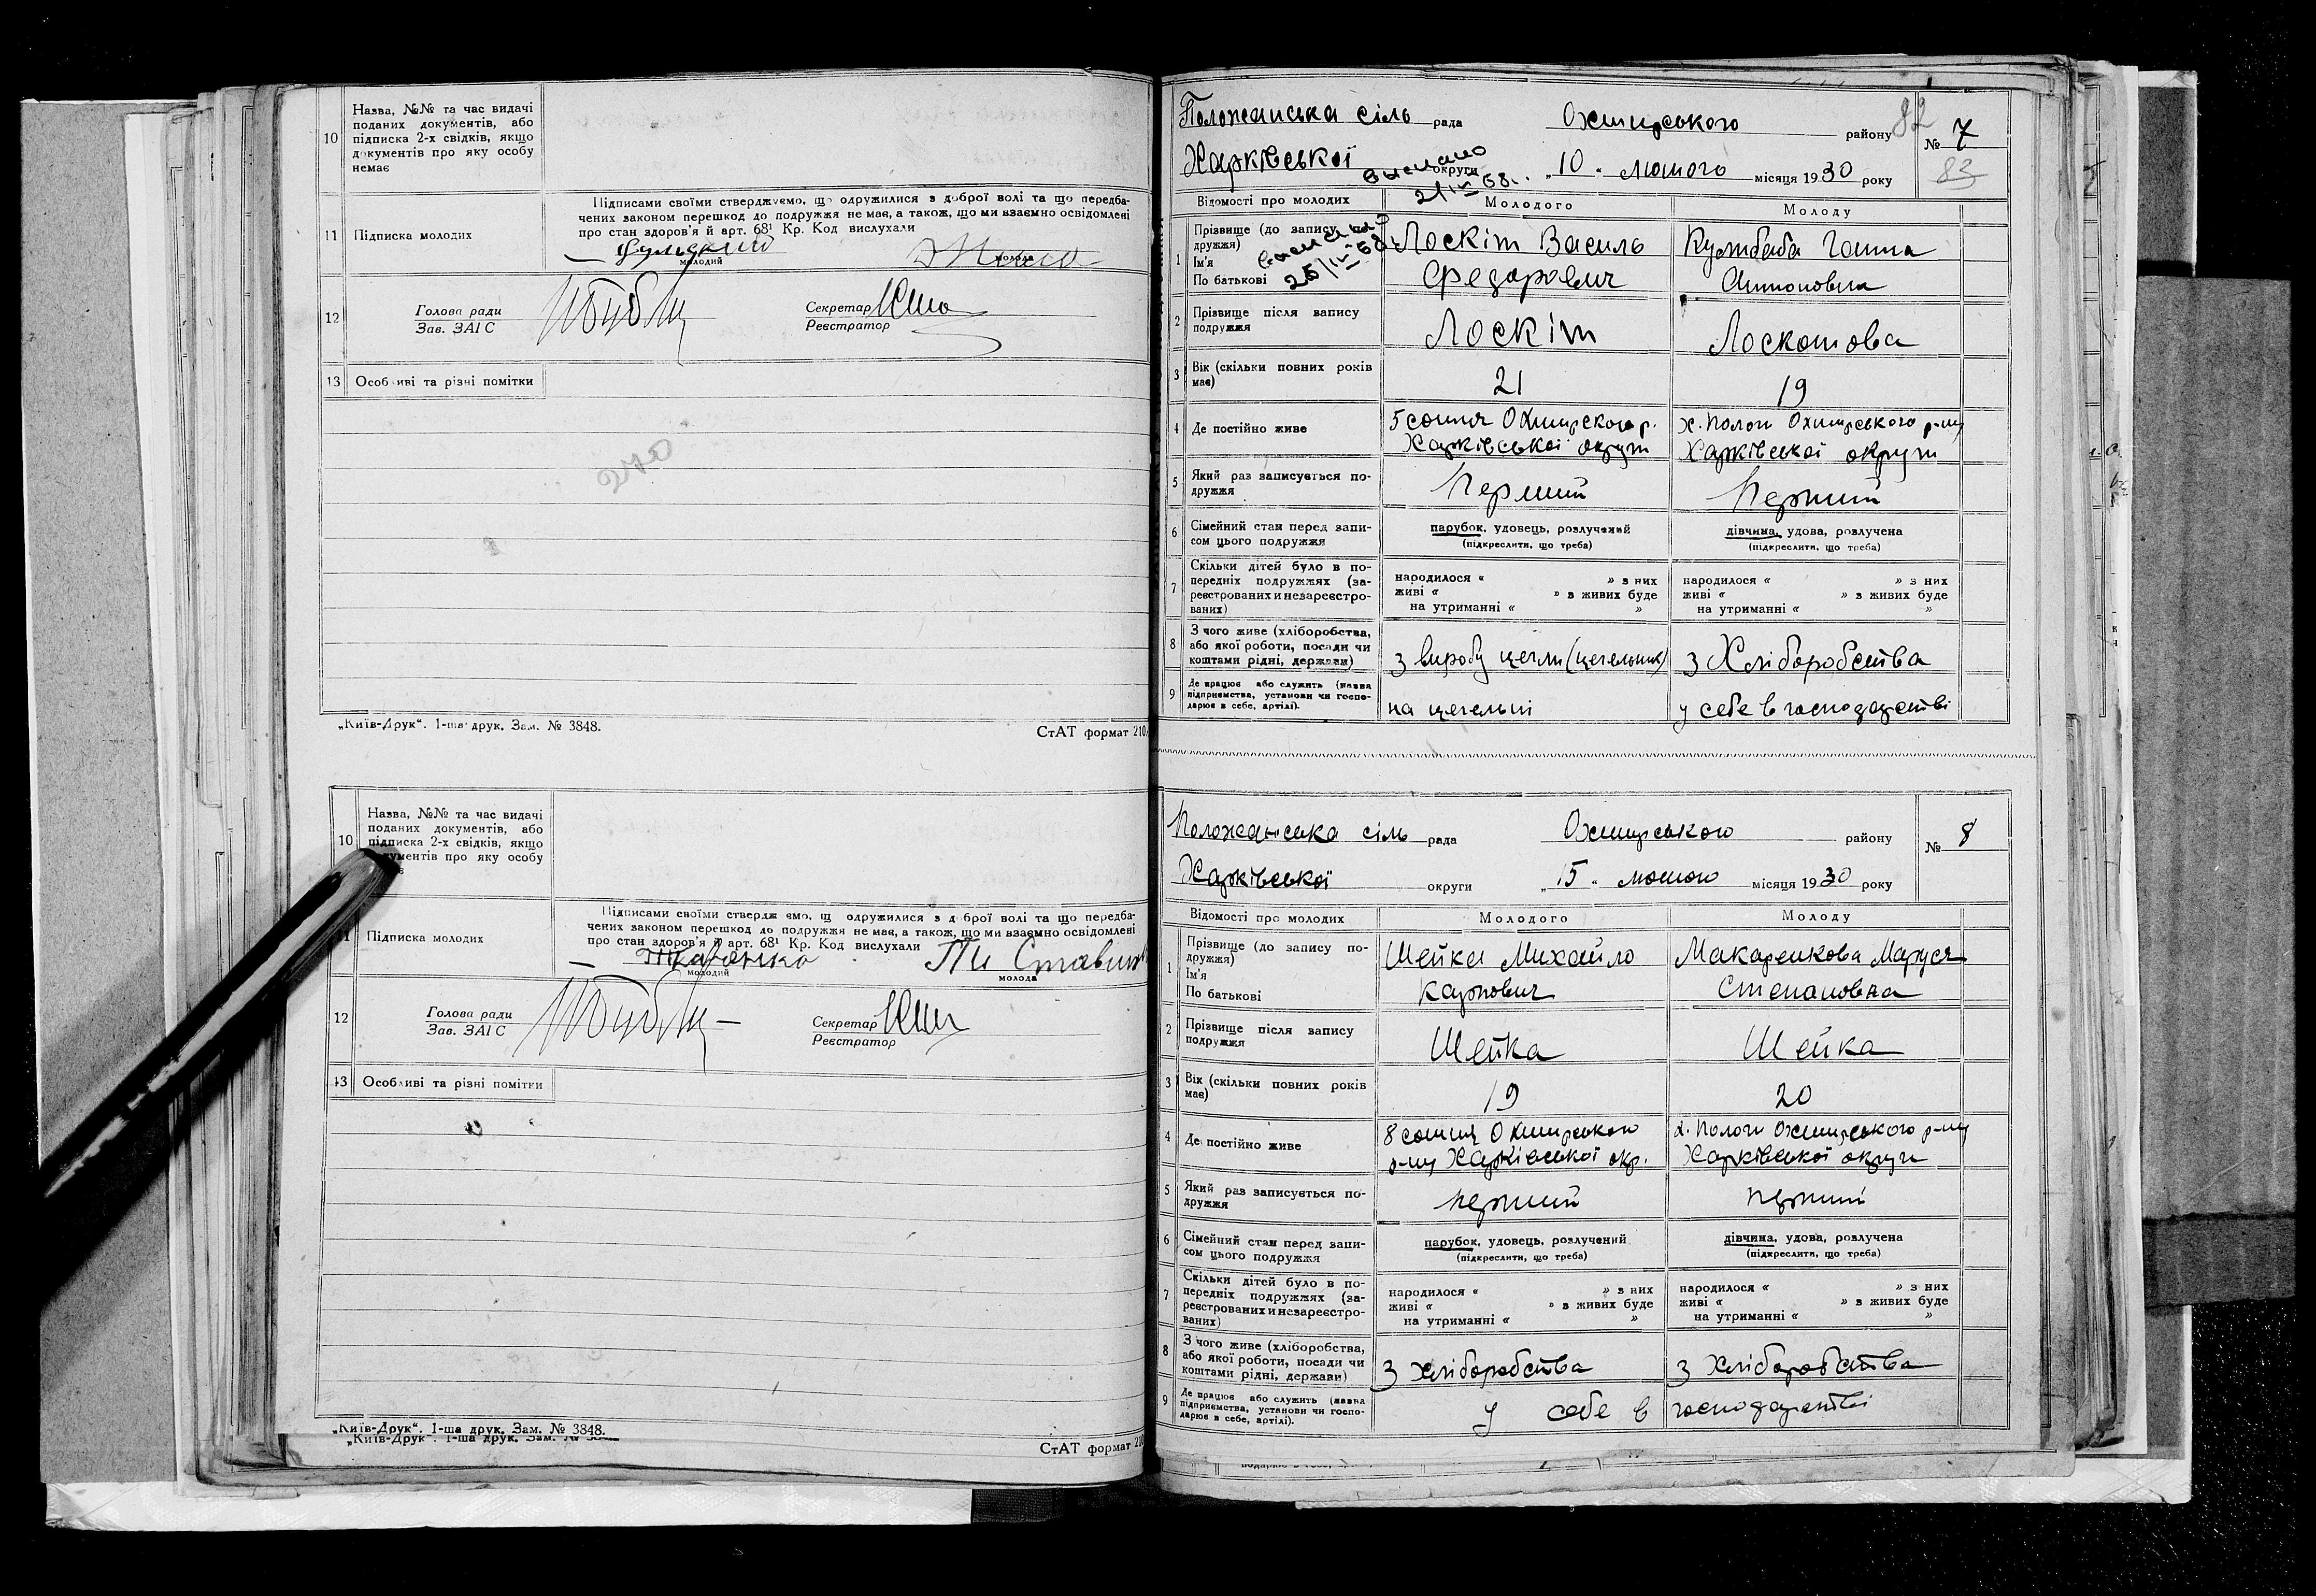 10 Назва, №№ та час видачі
поданих документів, або
підписка 2-х свідків, якщо
документів про яку особу
немає
Підписами своїми стверджуємо, що одружилися з доброї волі та що передба-
чених законом перешкод до подружжя не має, а також, що ми взаємно освідомлені
про стан здоров'я й арт. 68¹ Кр. Код вислухали
11 Підписка молодих
молодий молода
12 Голова ради Секретар
Зав. ЗАГС Реєстратор
13 Особливі та різні помітки
270
„Київ-Друк“. 1-ша друк. Зам. № 3848. СтАТ формат 210
10 Назва, №№ та час видачі
поданих документів, або
підписка 2-х свідків, якщо
документів про яку особу
Підписами своїми стверджуємо, що одружилися з доброї волі та що передба-
чених законом перешкод до подружжя не має, а також, що ми взаємно освідомлені
про стан здоров'я й арт. 68¹ Кр. Код вислухали
Підписка молодих
молодий молода
12 Голова ради Секретар
Зав. ЗАГС Реєстратор
13 Особливі та різні помітки
„Київ-Друк“. 1-ша друк. Зам. № 3848.
„Київ-Друк“. 1-ша друк. Зам. №
СтАТ формат 210
Положанська сіль рада Охтирського району 82 № 7
Харківської округи „10“ лютого місяця 1930 року 83
вислано
21/IV 68
Відомості про молодих Молодого Молоду
1 Прізвище (до запису подружжя) Лоскіт Василь Кулібаба Ганна
Ім'я
По батькові Федорович Антоновна
25/IV 68
2 Прізвище після запису
подружжя Лоскіт Лоскотова
3 Вік (скільки повних років
має) 21 19
4 Де постійно живе 5 сотня Охтирского р. х. Пологи Охтирського р-ну
Харківської округи Харківської округи
5 Який раз записується по-
дружжя Перший Перший
6 Сімейний стан перед запи- парубок, удовець, розлучений дівчина, удова, розлучена
сом цього подружжя (підкреслити, що треба) (підкреслити, що треба)
7 Скільки дітей було в по-
передніх подружжях (за- народилося « » з них народилося « » з них
реєстрованих и незареєстро- живі « » з живих буде живі « » з живих буде
ваних) на утриманні « » на утриманні « »
8 З чого живе (хліборобства,
або якої роботи, посади чи
коштами рідні, держави) з виробу цегли (цегельник) з Хліборобства
9 Де працює або служить (назва
підприємства, установи чи госпо-
дарює в себе, артілі). на цегельні у себе в господарстві
Положанська сіль рада Охтирського району № 8
Харківської округи „15“ лютого місяця 1930 року
Відомості про молодих Молодого Молоду
1 Прізвище (до запису по- Шейка Михайло Макаренкова Маруся
дружжя)
Ім'я
По батькові Карпович Степановна
2 Прізвище після запису
подружжя Шейка Шейка
3 Вік (скільки повних років
має) 19 20
4 Де постійно живе 8 сотня Охтирського х. Пологи Охтирського р-ну
р-ну Харківської окр. Харківської округи
5 Який раз записується по-
дружжя перший перший
6 Сімейний стан перед запи- парубок, удовець, розлучений дівчина, удова, розлучена
сом цього подружжя (підкреслити, що треба) (підкреслити, що треба)
7 Скільки дітей було в по-
передніх подружжях (за- народилося « » з них народилося « » з них
реєстрованих и незареєстро- живі « » з живих буде живі « » з живих буде
ваних) на утриманні « » на утриманні « »
8 З чого живе (хліборобства,
або якої роботи, посади чи
коштами рідні, держави) З хліборобства З хліборобства
9 Де працює або служить (назва
підприємства, установи чи госпо-
дарює в себе, артілі). У себе в господарстві